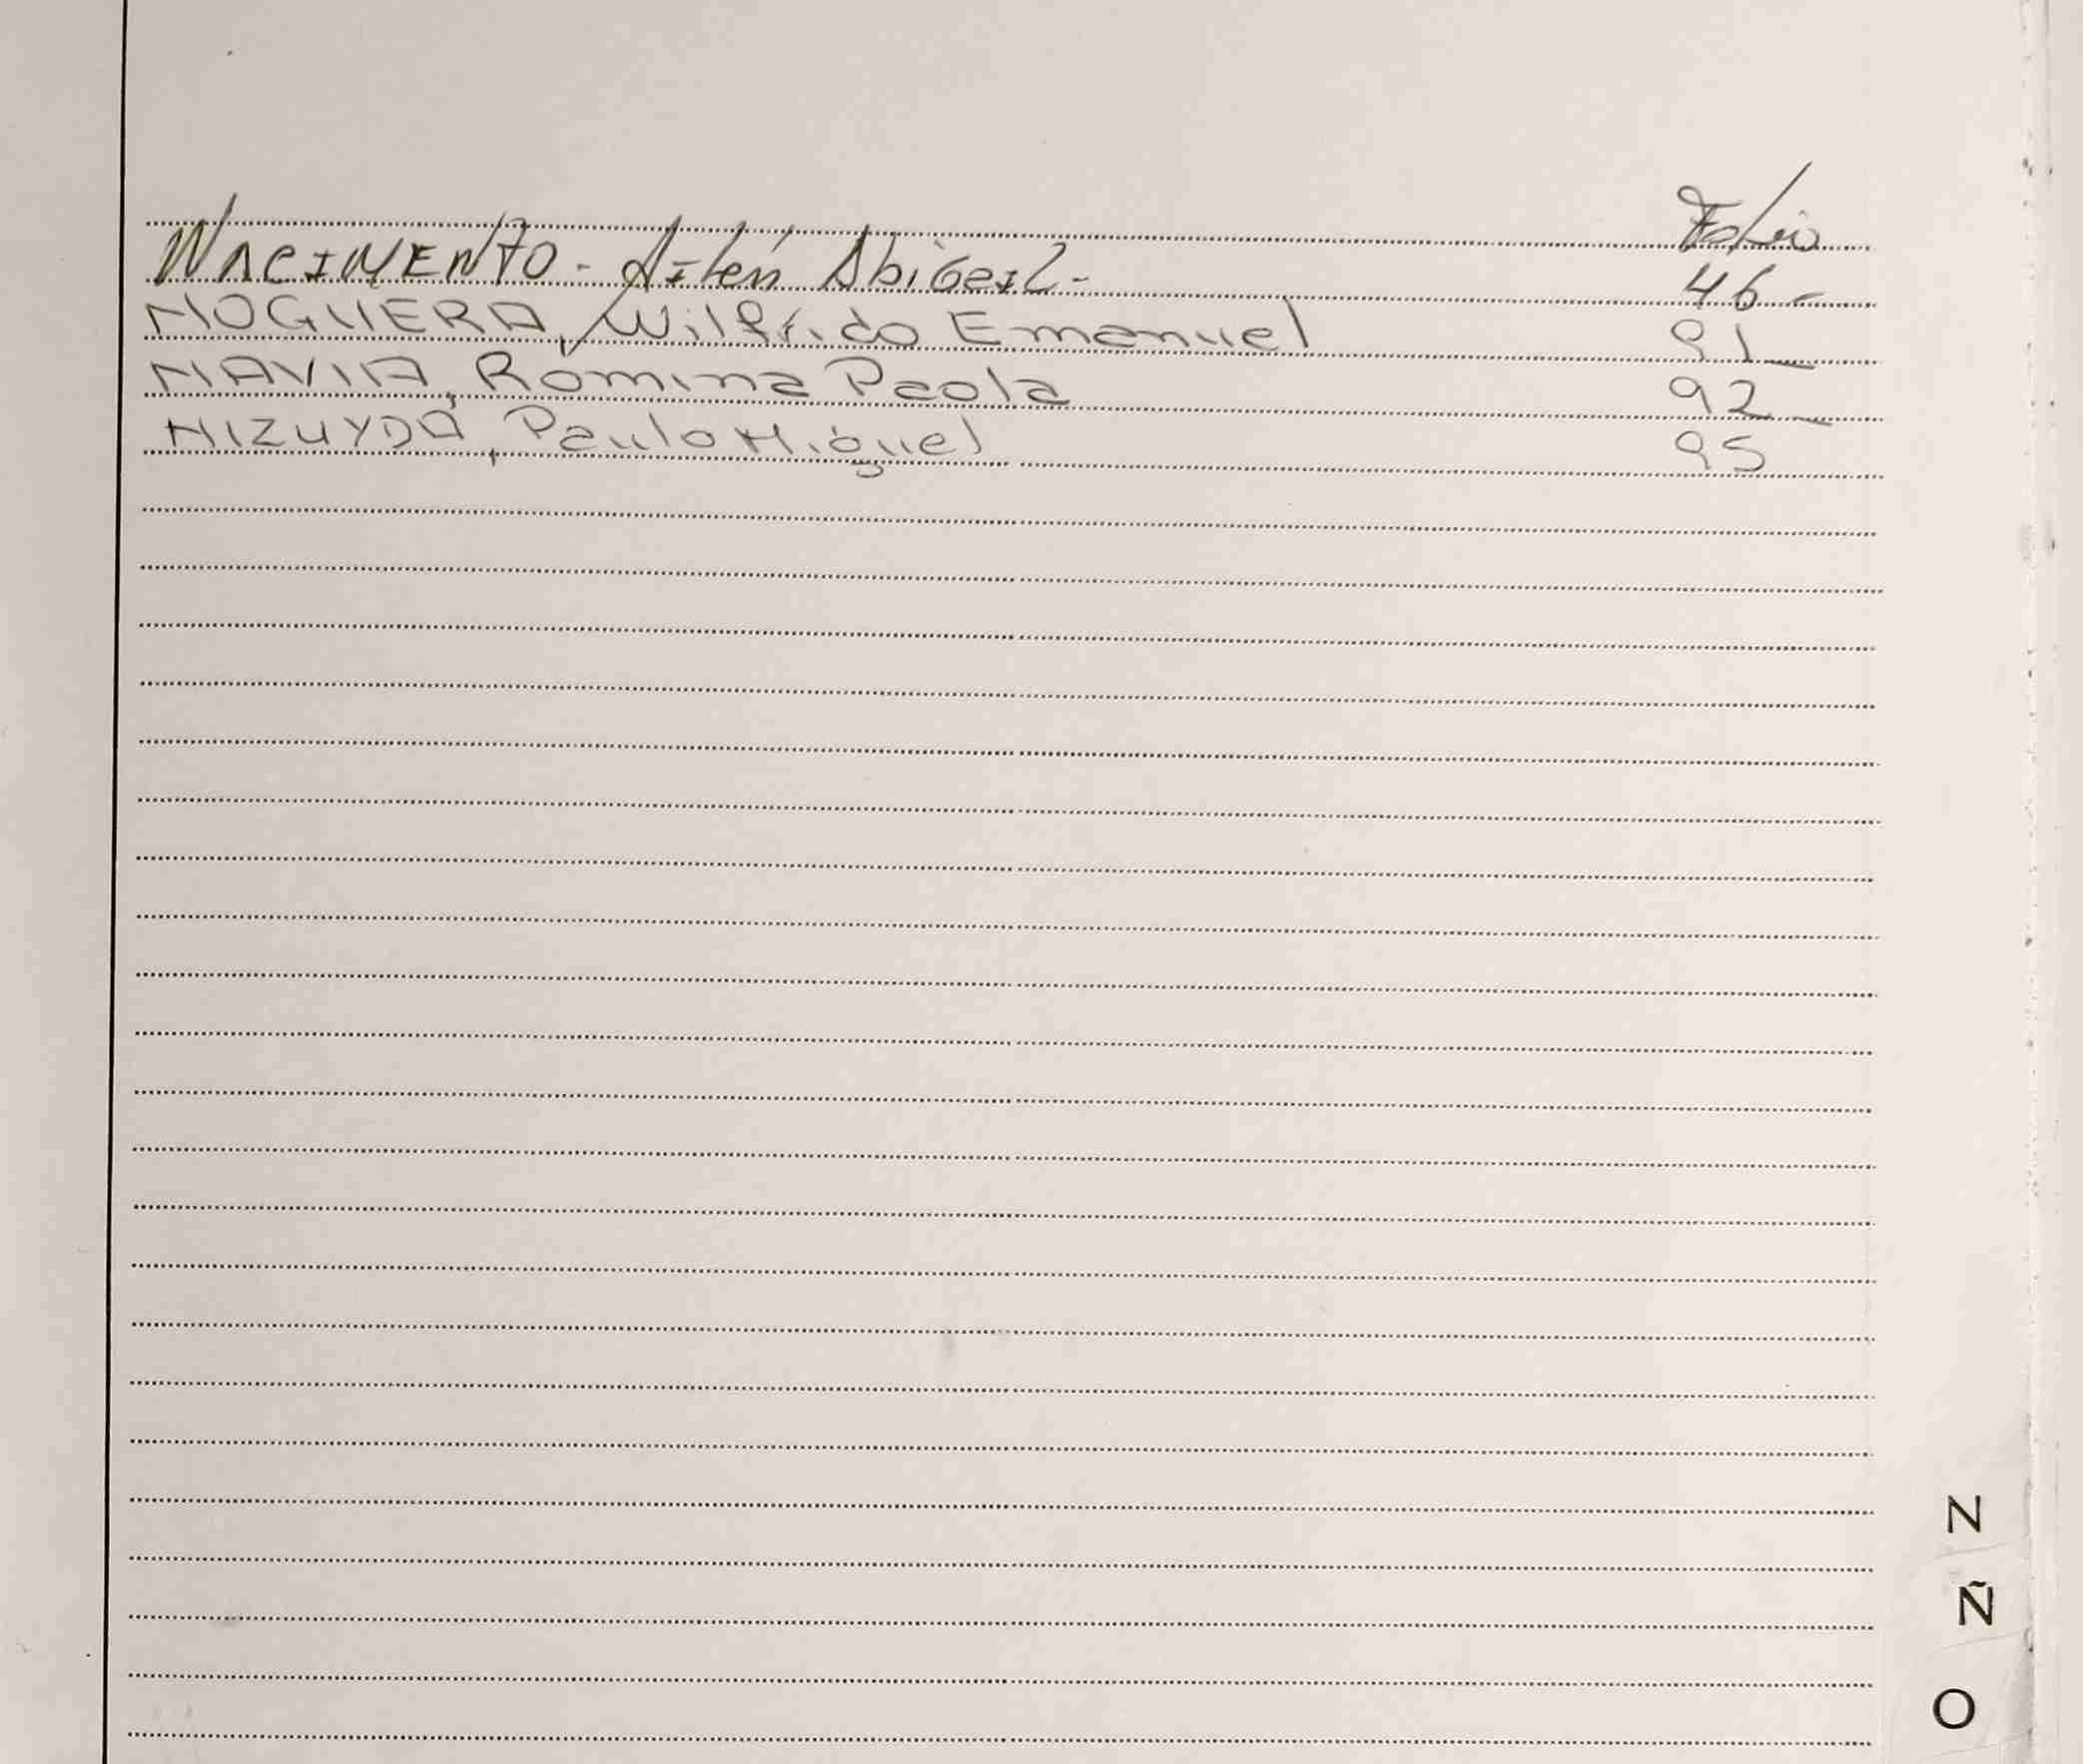 Folio
NACIMENTO - Ailén Abigail - 46 -
NOGUERA, Wilfrido Emanuel 91
NAVIA, Romina Paola 92
NIZUYDA, Paulo Miguel 95
N
Ñ
O